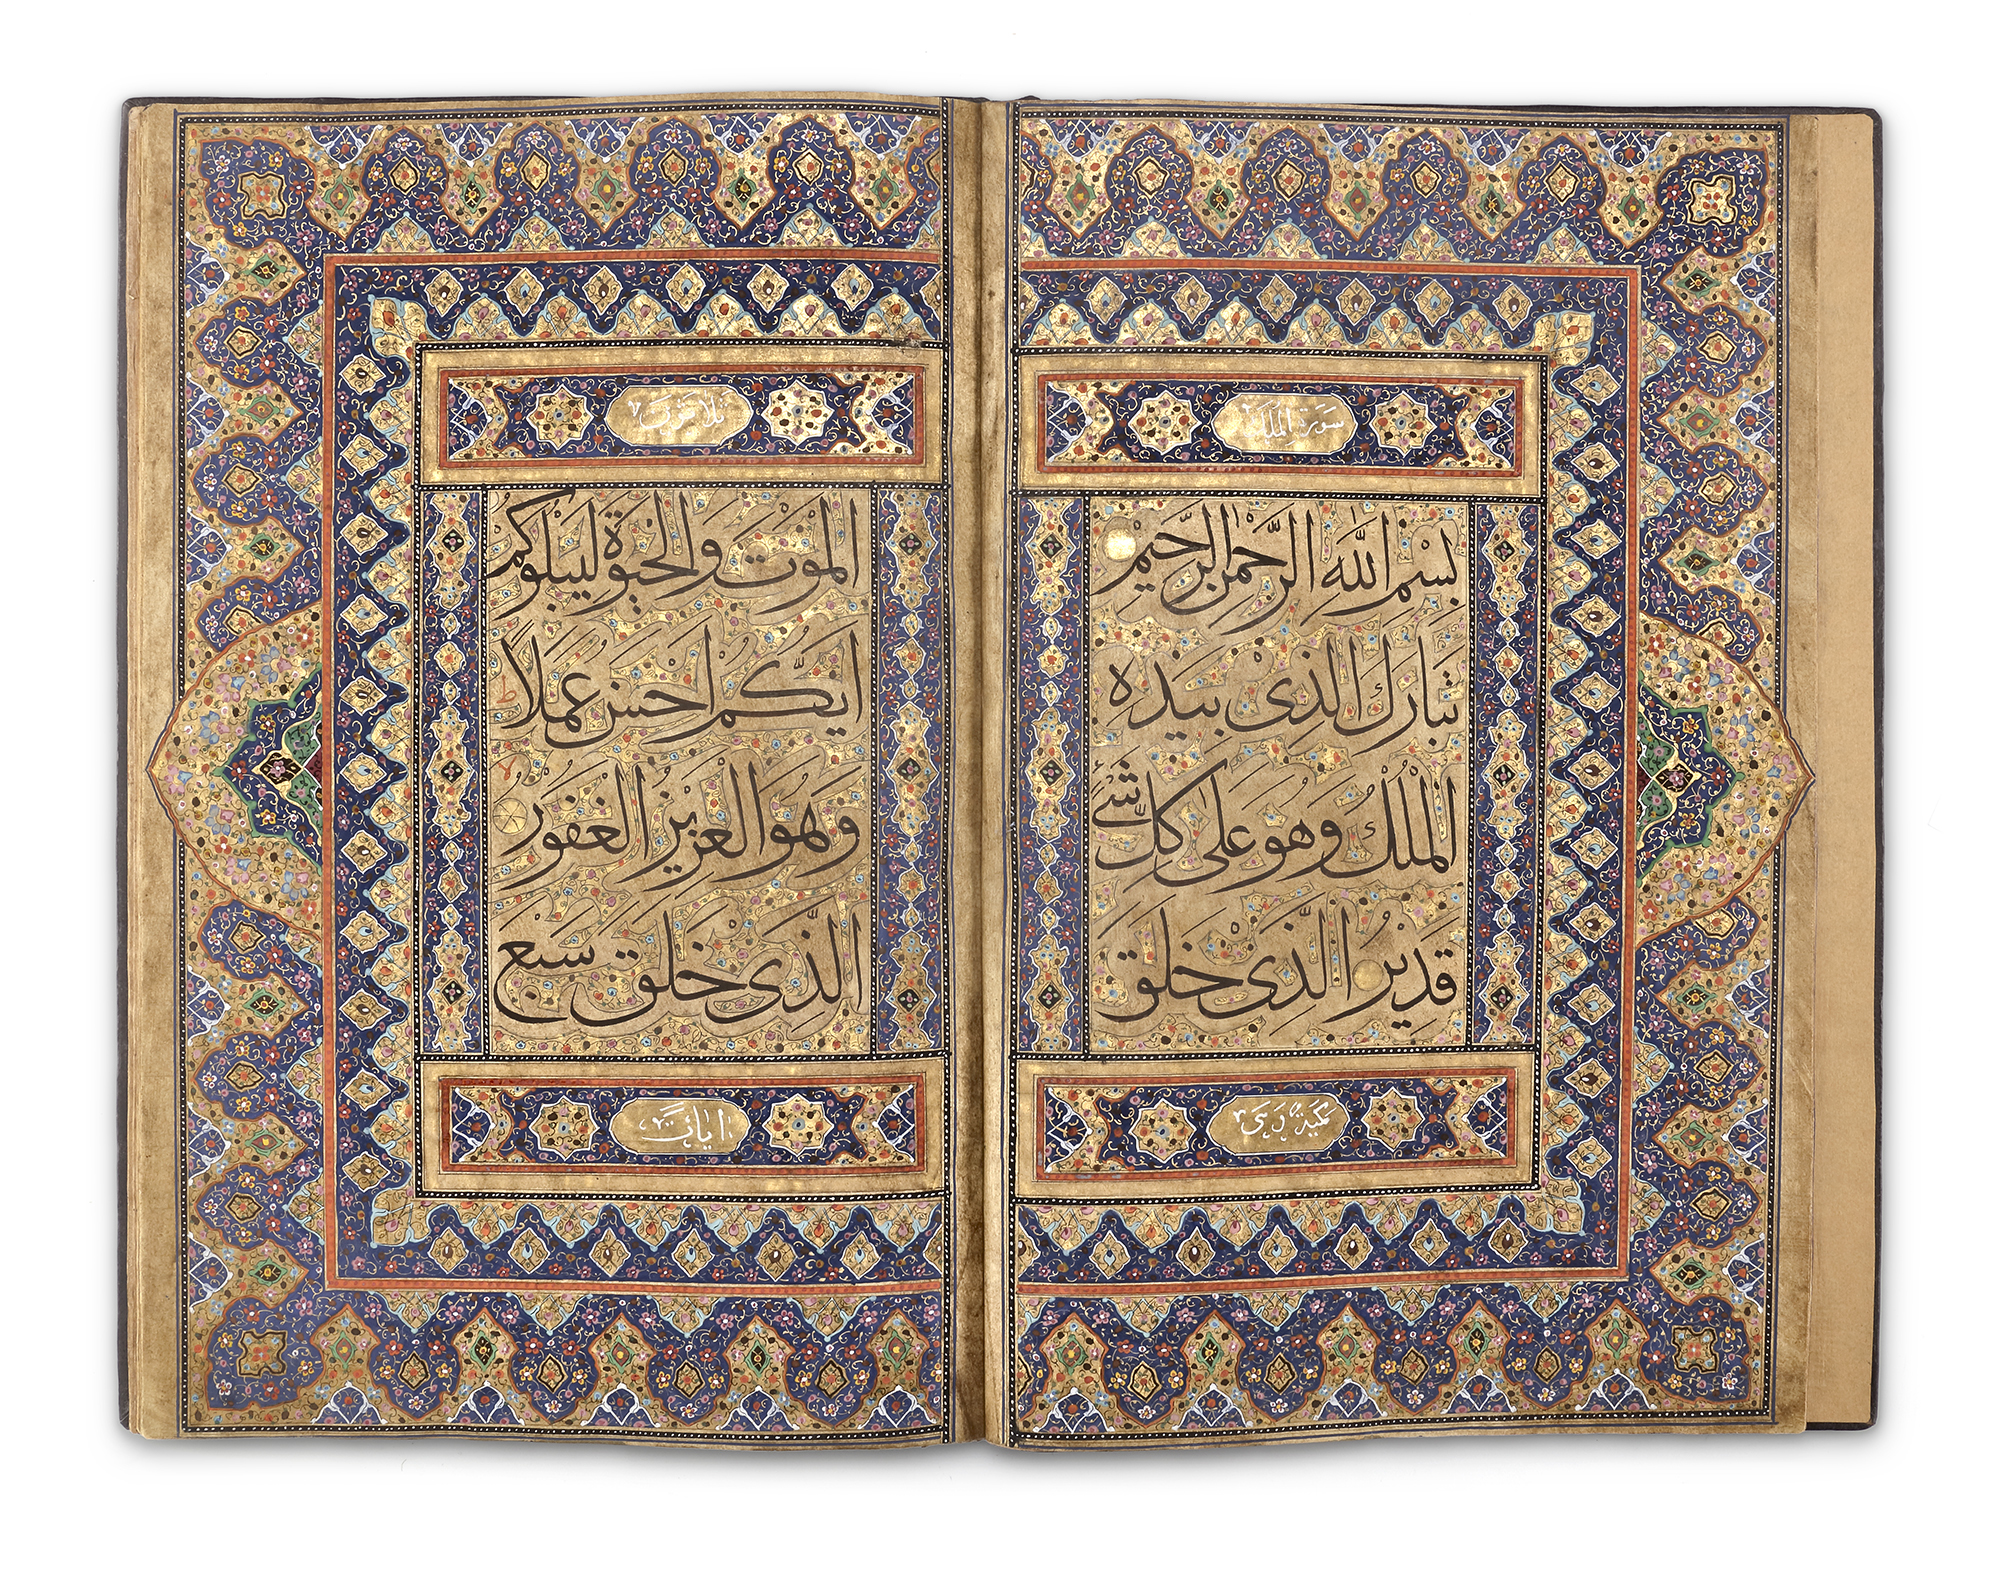 سورة الملك
بِسْمِ اللّٰهِ الرَّحْمٰنِ الرَّحِيْمِ
تَبَارَكَ الَّذِیْ بِيَدِهِ
الْمُلْكُ وَهُوَ عَلٰی كُلِّ شَیْءٍ
قَدِيْرُ الَّذِیْ خَلَقَ
مكية وهى
الْمَوْتَ وَالْحَيٰوةَ لِيَبْلُوَكُمْ
اَيُّكُمْ اَحْسَنُ عَمَلًا ط
وَهُوَ الْعَزِيْزُ الْغَفُوْرُ لا
الَّذِیْ خَلَقَ سَبْعَ
ايات